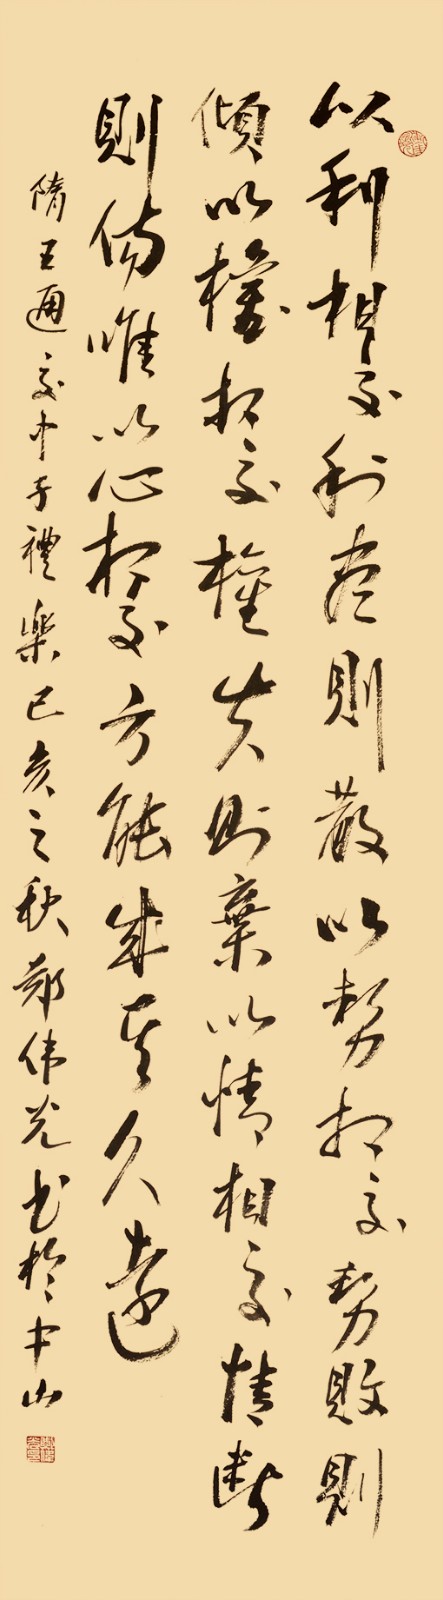 以利相交利尽則散以勢相交勢敗則
傾以權相交權失則棄以情相交情断
則傷唯以心相交方能成其久遠
隋王通文中子禮樂己亥之秋鄭伟光书於中山